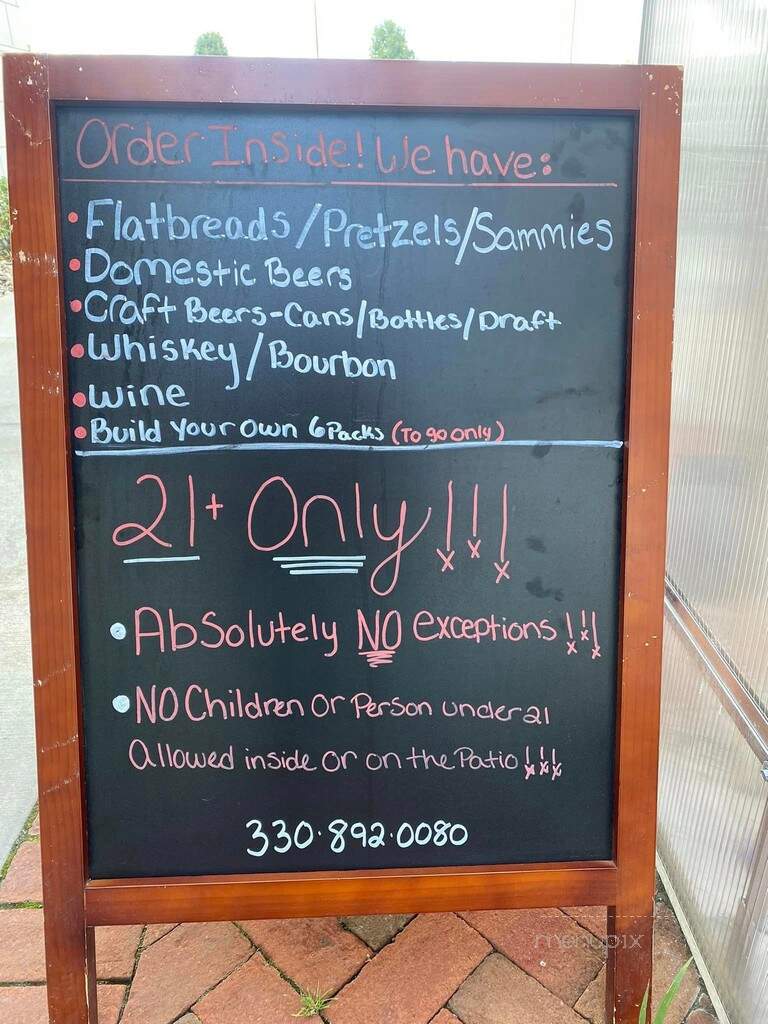 Order Inside! We have:
• Flatbreads/Pretzels/Sammies
• Domestic Beers
• Craft Beers-Cans/Bottles/Draft
• Whiskey/Bourbon
• Wine
• Build Your Own 6 Packs (To go only)
21+ Only!!!
• Absolutely NO exceptions!!!
• NO Children or Person under 21
Allowed inside or on the Patio!!!
330.892.0080
menupix